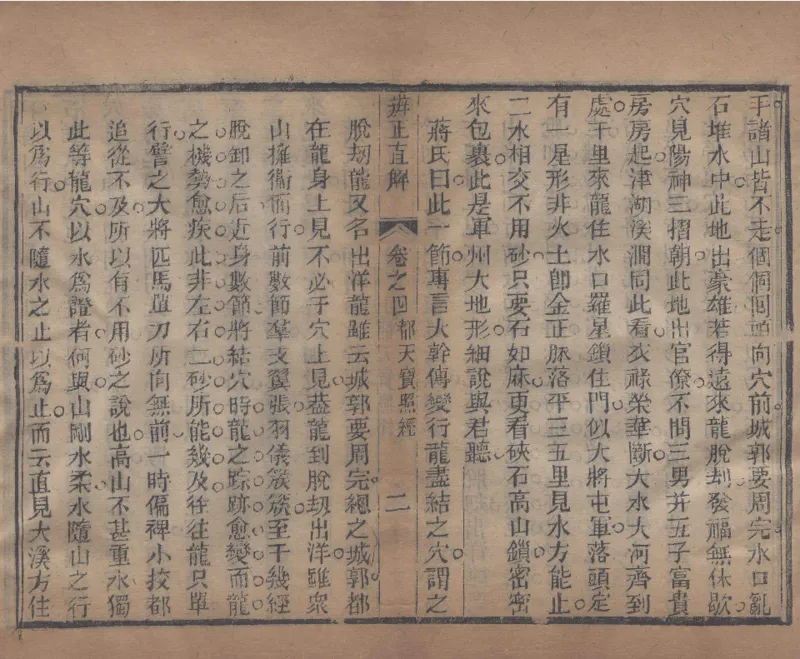 手諸山皆不走個個回頭向穴前城郭要周完水口亂
石堆水中此地出豪雄若得遠來龍脫刦發福無休歇
穴見陽神三摺朝此地出官僚不問三男幷五子富貴
房房起津湖溪澗同此看衣祿榮華斷大水大河齊到
處千里來龍住水口羅星鎖住門似大將屯軍落頭定
有一星形非火土卽金正脉落平三五里見水方能止
二水相交不用砂只要石如麻更看硤石高山鎖密密
來包裹此是軍州大地形細說與君聽
蔣氏曰此一節專言大幹傳變行龍盡結之穴謂之
辨正直解 卷之四都天寶照經 二
脫刦龍又名出洋龍雖云城郭要周完總之城郭都
在龍身上見不必于穴上見葢龍到脫刦出洋雖衆
山擁衞而行前數節羣支翼張羽儀簇簇至于幾經
脫卸之后近身數節將結穴時龍之踪跡愈變而龍
之機勢愈疾此非左右二砂所能幾及往往龍只單
行譬之大將匹馬單刀所向無前一時偏裨小挍都
追從不及所以有不用砂之說也高山不甚重水獨
此等龍穴以水爲證者何與山剛水柔水隨山之行
以爲行山不隨水之止以爲止而云直見大溪方住